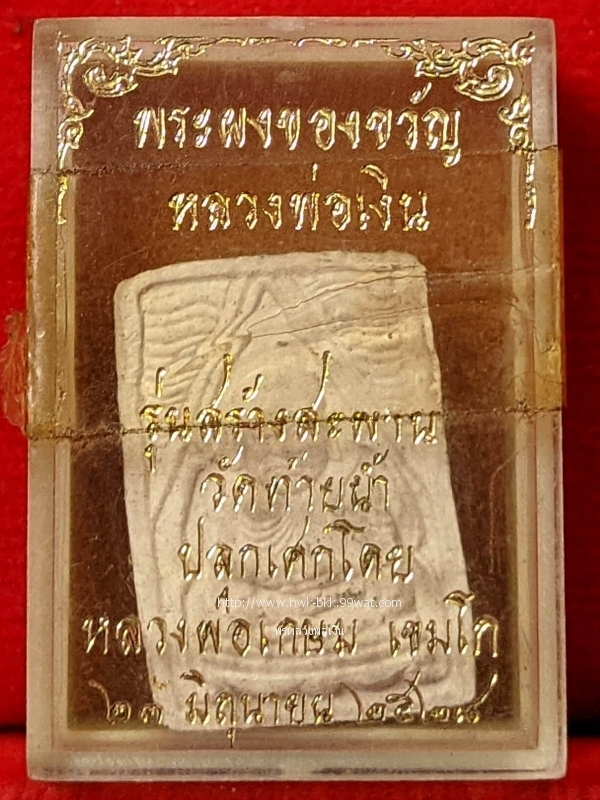 พระผงของขวัญ
หลวงพ่อเงิน
รุ่นสร้างสะพาน
วัดท้ายน้ำ
ปลุกเศกโดย
http://www.hwl-bkk.99wat.com
หลวงพ่อเกษม เขมโก
๒๓ มิถุนายน ๒๕๒๘